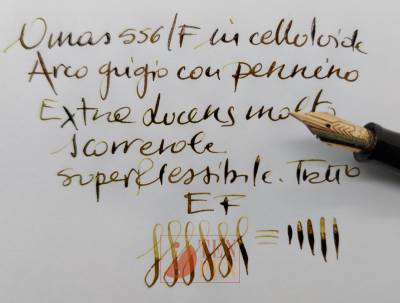 Omas 556/F in celluloide
Arco grigio con pennino
Extra ducens molto
scorrevole
superflessibile. Tratto
EF